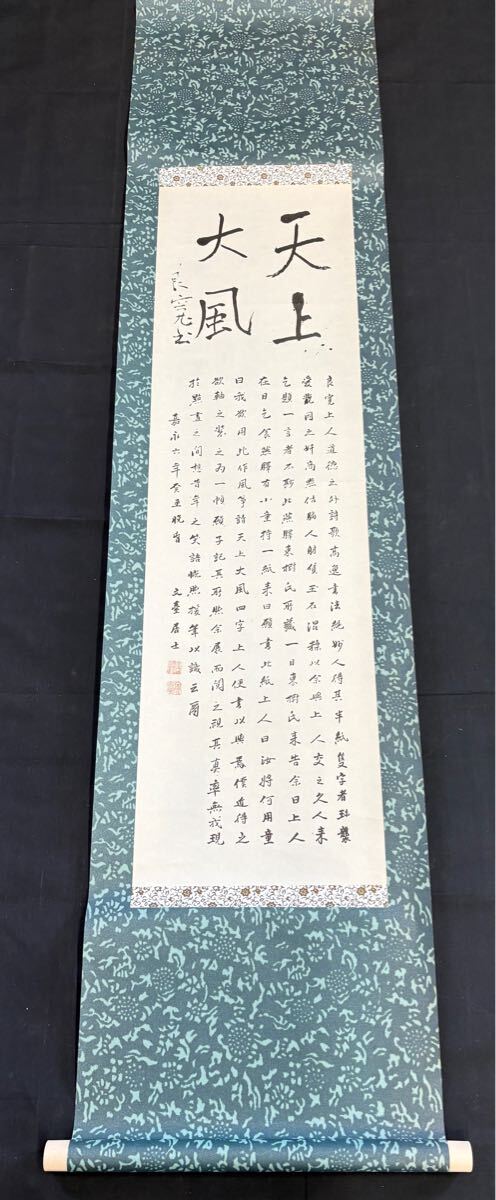 天上
大風
良寛書
良寛上人道徳之外詩歌高逸書法絶妙人得其半紙隻字者珎襲
愛翫同之好尚然佔騙人射貨玉石混殽以余與上人交之久人来
乞題一言者不尠此燕驛東樹氏所蔵一日東樹氏来告余曰上人
在日乞食燕驛有小童持一紙来曰願書此紙上人曰汝將何用童
曰我欲用此作風箏請天上大風四字上人便書以與焉價道得之
欲軸之装之為一幀願子記其所照余展而閲之視其真率無我現
於點畫之間想昔年之笑語憮然援筆以識云爾
嘉永六年癸丑晩首
文臺居士